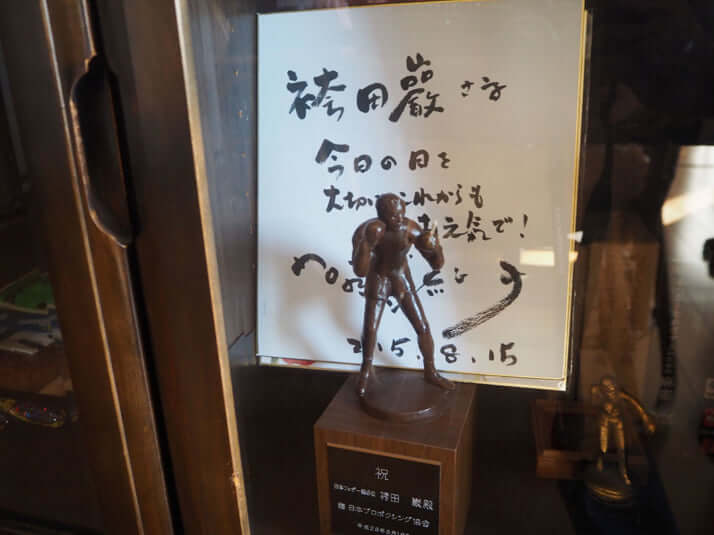 袴田巖さま
今日の日を
大切に これからも
お元気で!
2015.8.15
祝
日本フェザー級6位 袴田 巖殿
贈 日本プロボクシング協会